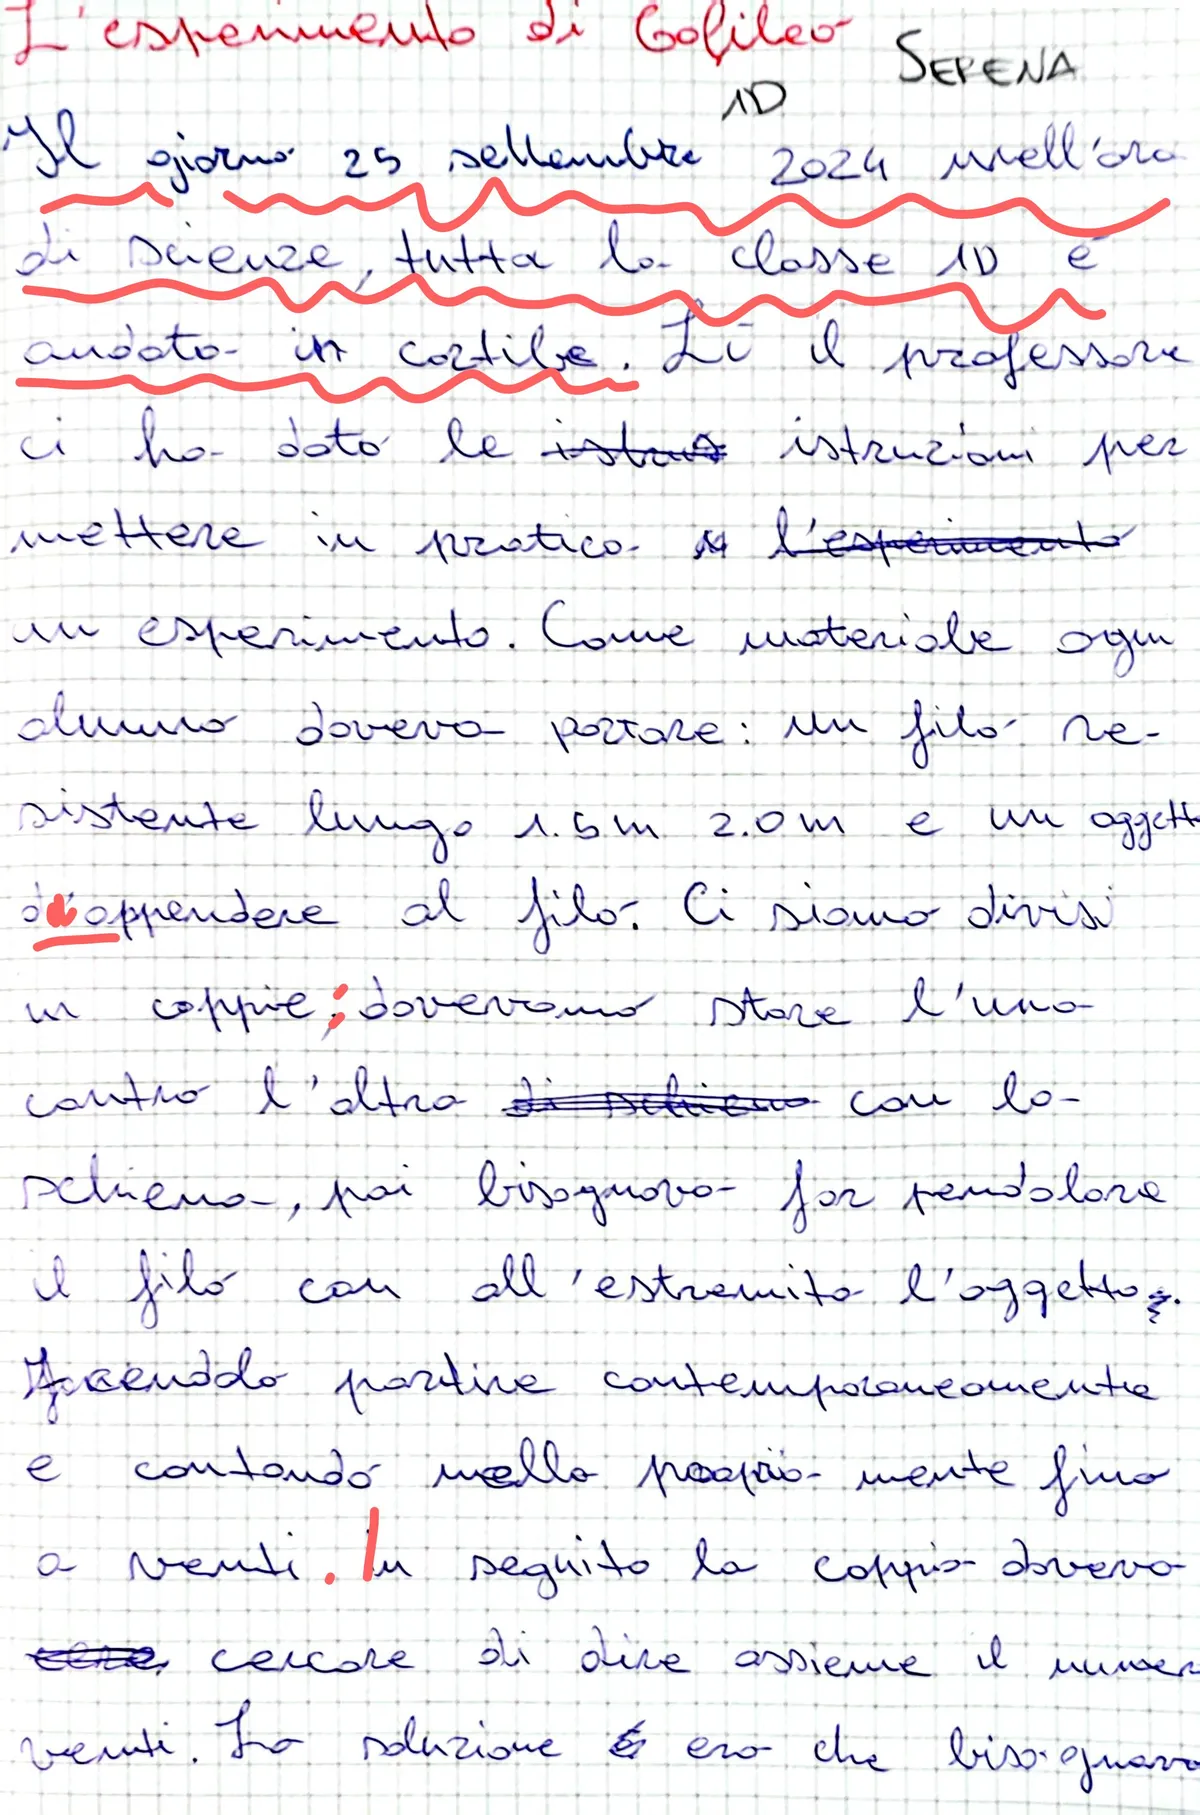 L'esperimento di Galileo
SERENA
1D
Il giorno 25 settembre 2024 nell'ora
di scienze, tutta la classe 1D è
andata in cortile. Lì il professore
ci ha dato le istruzioni per
mettere in pratica l'esperimento
un esperimento. Come materiale ogni
alunno doveva portare: un filo re-
sistente lungo 1.5m 2.0m e un oggetto
da appendere al filo. Ci siamo divisi
in coppie; dovevamo stare l'uno
contro l'altro di schiena con la
schiena, poi bisognava far pendolare
il filo con all'estremità l'oggetto.
Facendolo partire contemporaneamente
e contando nella propria mente fino
a venti. In seguito la coppia doveva
cercare di dire assieme il numer
venti. La soluzione era che bisognava